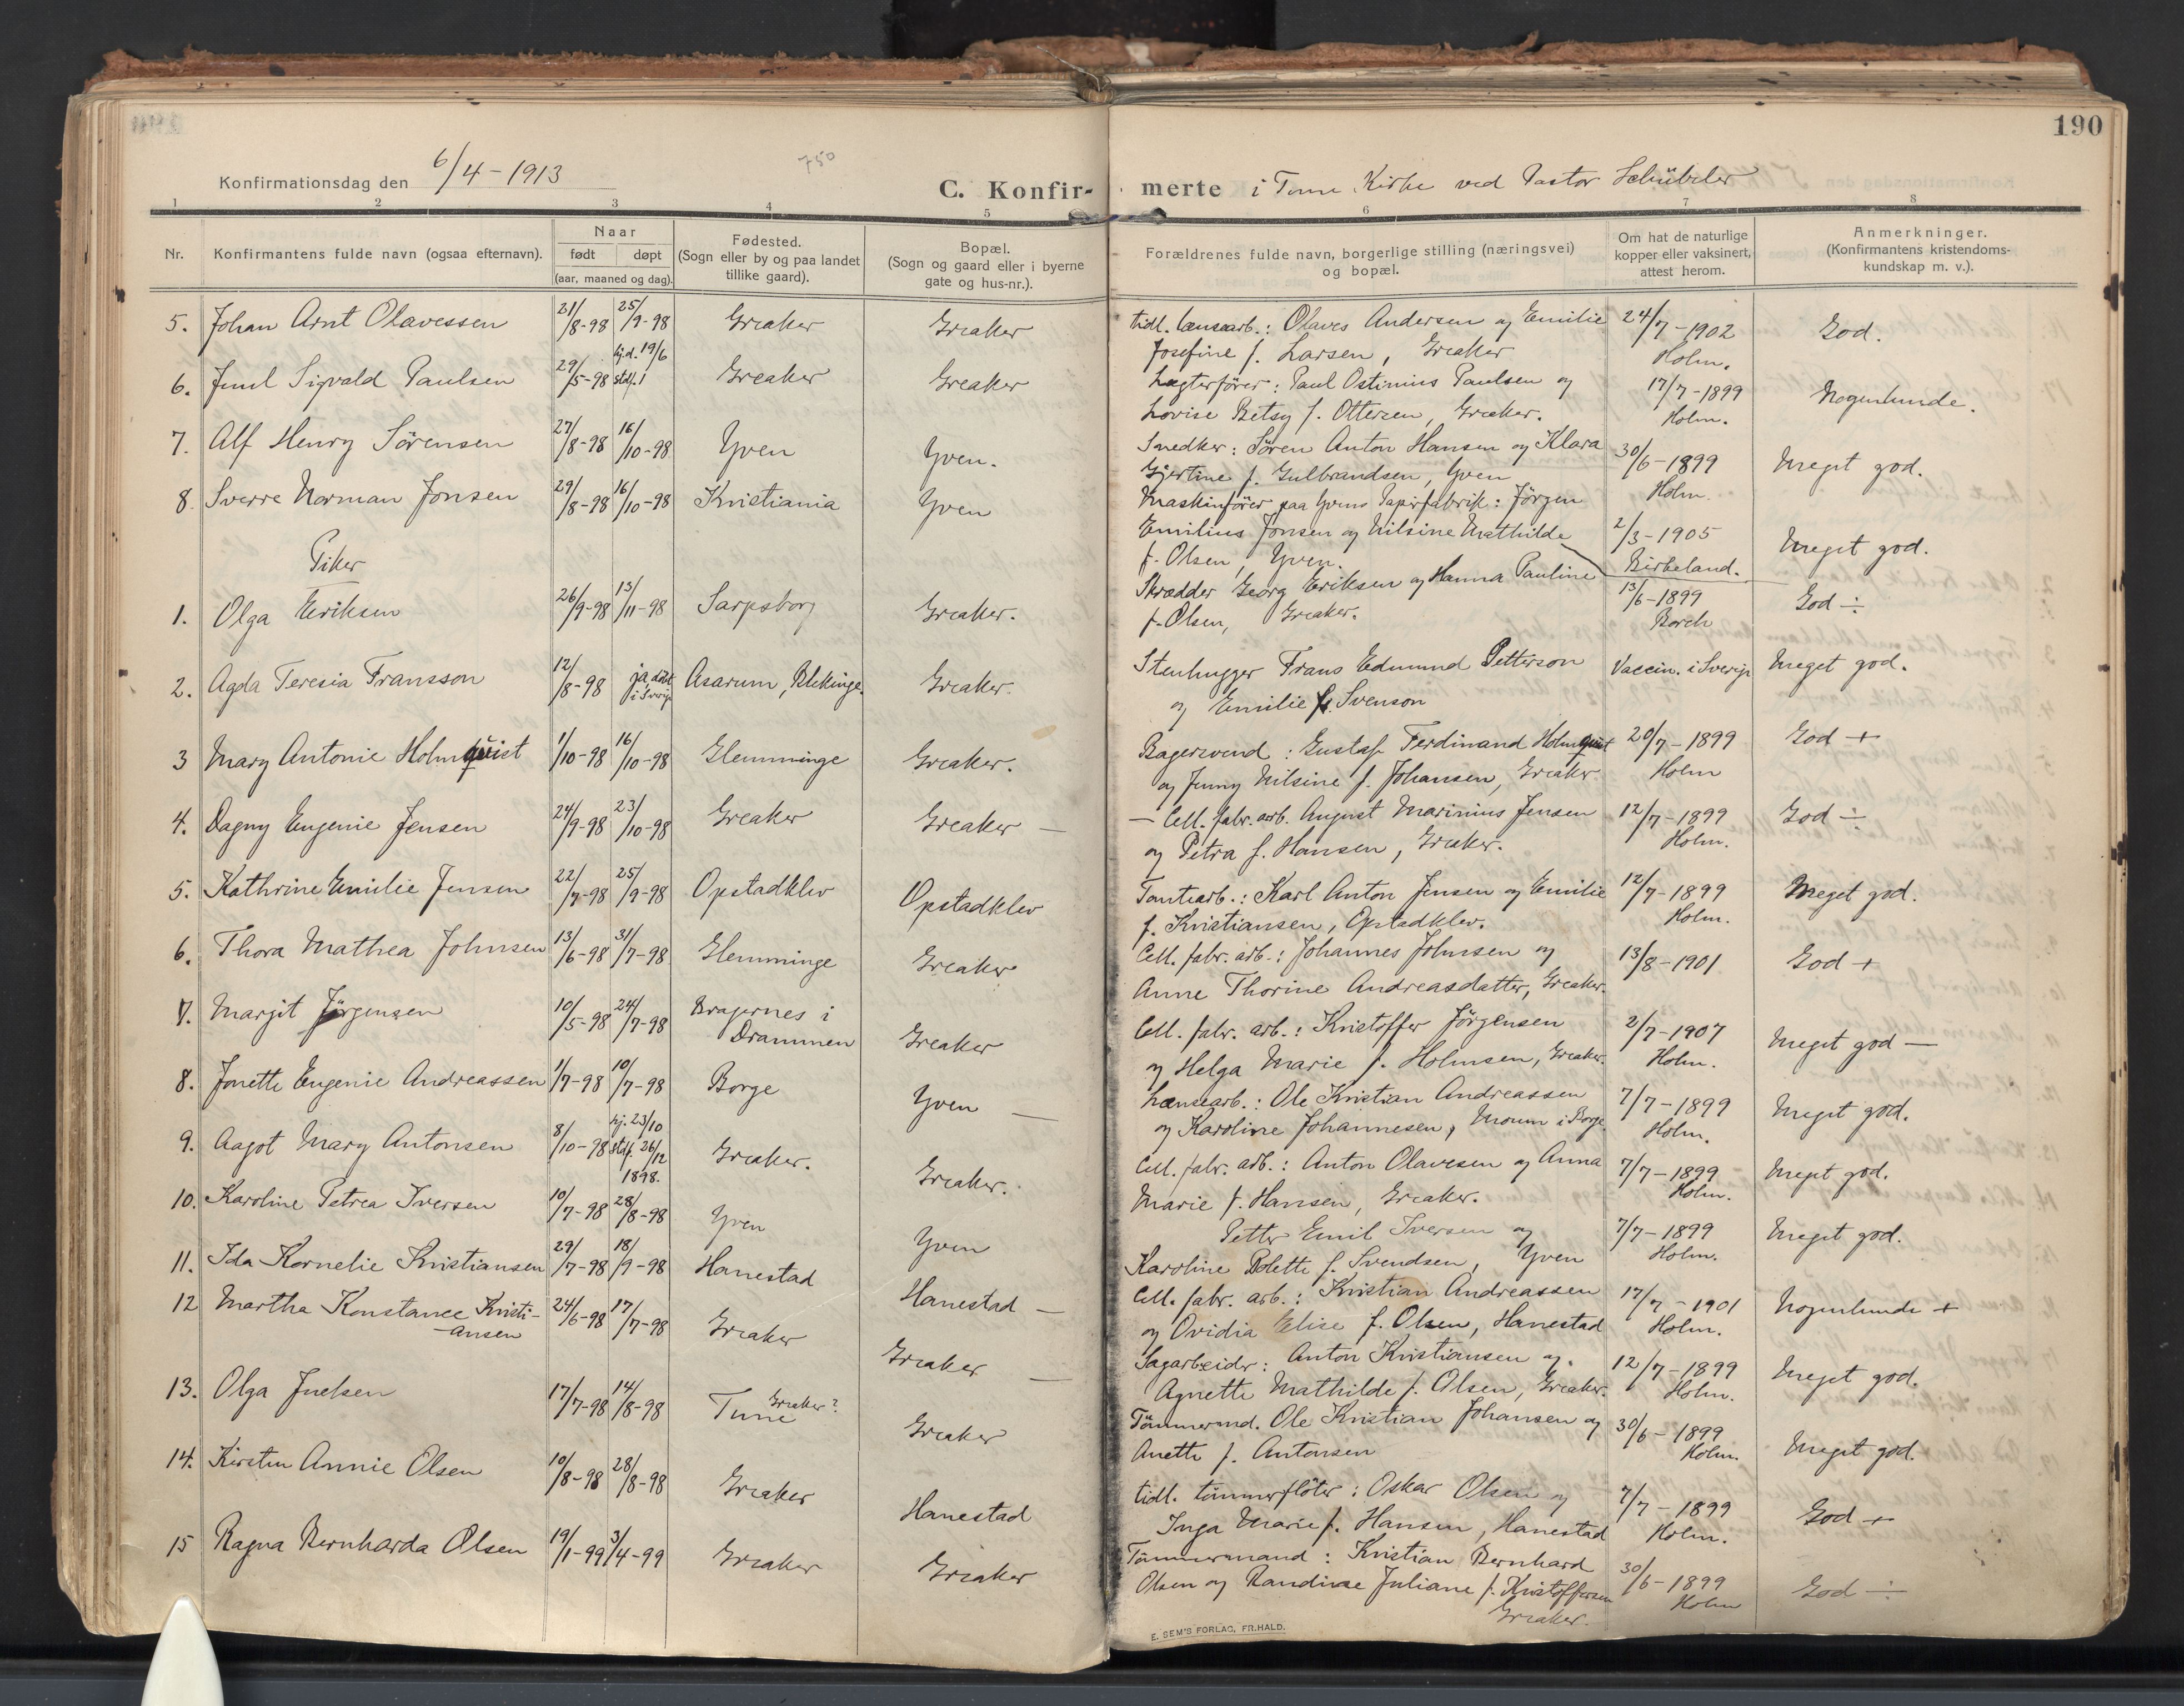 190
Konfirmationsdag den 6/4-1913
750
C. Konfir-merte i Tune Kirke ved Pastor Schübeler
1 2 3 4 5 6 7 8
Nr. Konfirmantens fulde navn (ogsaa efternavn). Naar født døpt (aar, maaned og dag). Fødested. (Sogn eller by og paa landet tillike gaard). Bopæl. (Sogn og gaard eller i byerne gate og hus-nr.). Forældrenes fulde navn, borgerlige stilling (næringsvei) og bopæl. Om hat de naturlige kopper eller vaksinert, attest herom. Anmerkninger. (Konfirmantens kristendoms-kundskap m. v.).
5. Johan Arnt Olavessen 21/8-98 25/9-98 Greaker Greaker tidl. lænsearb.: Olaves Andersen og Emilie 24/7-1902 God.
Josefine f. Larsen, Greaker Holm.
6. Juul Sigvald Paulsen 29/5-98 hj.d. 19/6 stdf. 1 Greaker Greaker Lægterfører: Paul Ostinius Paulsen og 17/7-1899 Nogenlunde.
Lovise Betsy f. Ottersen, Greaker. Holm.
7. Alf Henry Sörensen 27/8-98 16/10-98 Yven Yven. Snedker: Sören Anton Hansen og Klara 30/6-1899 Meget god.
Gjertine f. Gulbrandsen, Yven Holm.
8. Sverre Norman Jonsen 29/8-98 16/10-98 Kristiania Yven Maskinförer paa Yvens Papirfabrik: Jörgen
Emilius Jonsen og Nilsine Mathilde 2/3-1905 Meget god.
f. Olsen, Yven. Birkeland.
Piker
1. Olga Eriksen 26/9-98 13/11-98 Sarpsborg Greaker. Skrædder Georg Eriksen og Hanna Pauline 13/6-1899 God ÷
f. Olsen, Greaker. Borch
2. Agda Teresia Fransson 12/8-98 ja, døbt i Sverige Asarum, Blekinge. Greaker. Stenhugger Frans Edmund Petterson Vaccin. i Sverige Meget god.
og Emilie f. Svenson
3 Mary Antonie Holmquist 1/10-98 16/10-98 Glemminge Greaker. Bagersvend: Gustaf Ferdinand Holmquist 20/7-1899 God +
og Jenny Nilsine f. Johansen, Greaker Holm
4. Dagny Eugenie Jensen 24/9-98 23/10-98 Greaker Greaker — — Cell. fabr. arb. August Marinius Jensen 12/7-1899 God ÷
og Petra f. Hansen, Greaker. Holm.
5. Kathrine Emilie Jensen 22/7-98 25/9-98 Opstadklev Opstadklev Tomtearb.: Karl Anton Jensen og Emilie 12/7-1899 Meget god.
f. Kristiansen, Opstadklev. Holm.
6. Thora Mathea Johnsen 13/6-98 31/7-98 Glemminge Greaker Cell. fabr. arb.: Johannes Johnsen og 13/8-1901 God +
Anne Thorine Andreasdatter, Greaker.
7. Margit Jörgensen 10/5-98 24/7-98 Bragernes i Drammen Greaker Cell. fabr. arb.: Kristoffer Jörgensen 2/7-1907 Meget god —
og Helga Marie f. Holmsen, Greaker. Holm.
8. Jonette Eugenie Andreassen 1/7-98 10/7-98 Borge Yven — Lænsearb.: Ole Kristian Andreassen 7/7-1899 Meget god.
og Karoline Johannesen, Moum i Borge. Holm.
9. Aagot Mary Antonsen 8/10-98 hj. 23/10 stdf. 26/12 1898. Greaker. Greaker. Cell. fabr. arb.: Anton Olavesen og Anna 7/7-1899 Meget god.
Marie f. Hansen, Greaker. Holm.
10. Karoline Petrea Iversen 10/7-98 28/8-98 Yven Yven Petter Emil Iversen og 7/7-1899 Meget god.
Karoline Bolette f. Svendsen, Yven Holm.
11. Ida Kornelie Kristiansen 29/7-98 18/9-98 Hanestad Hanestad — Cell. fabr. arb.: Kristian Andreassen 17/7-1901 Nogenlunde +
og Ovidia Elise f. Olsen, Hanestad Holm.
12 Martha Konstance Kristi-ansen 24/6-98 17/7-98 Greaker Greaker — Sagarbeider: Anton Kristiansen og. 12/7-1899 Meget god.
Agnette Mathilde f. Olsen, Greaker. Holm.
13. Olga Juelsen 17/7-98 14/8-98 Tune Greaker? Greaker Tömmermd. Ole Kristian Johansen og 30/6-1899 Meget god.
Anette f. Antonsen Holm.
14. Kirsten Annie Olsen 10/8-98 28/8-98 Greaker Hanestad tidl. tömmerflöter: Oskar Olsen og 7/7-1899 God +
Inga Marie f. Hansen, Hanestad Holm.
15 Ragna Bernharda Olsen 19/1-99 3/4-99 Greaker Greaker Tömmermand: Kristian Bernhard 30/6-1899 God ÷
Olsen og Randine Juliane f. Kristoffersen Holm
Greaker.
E. SEM'S FORLAG, FR.HALD.